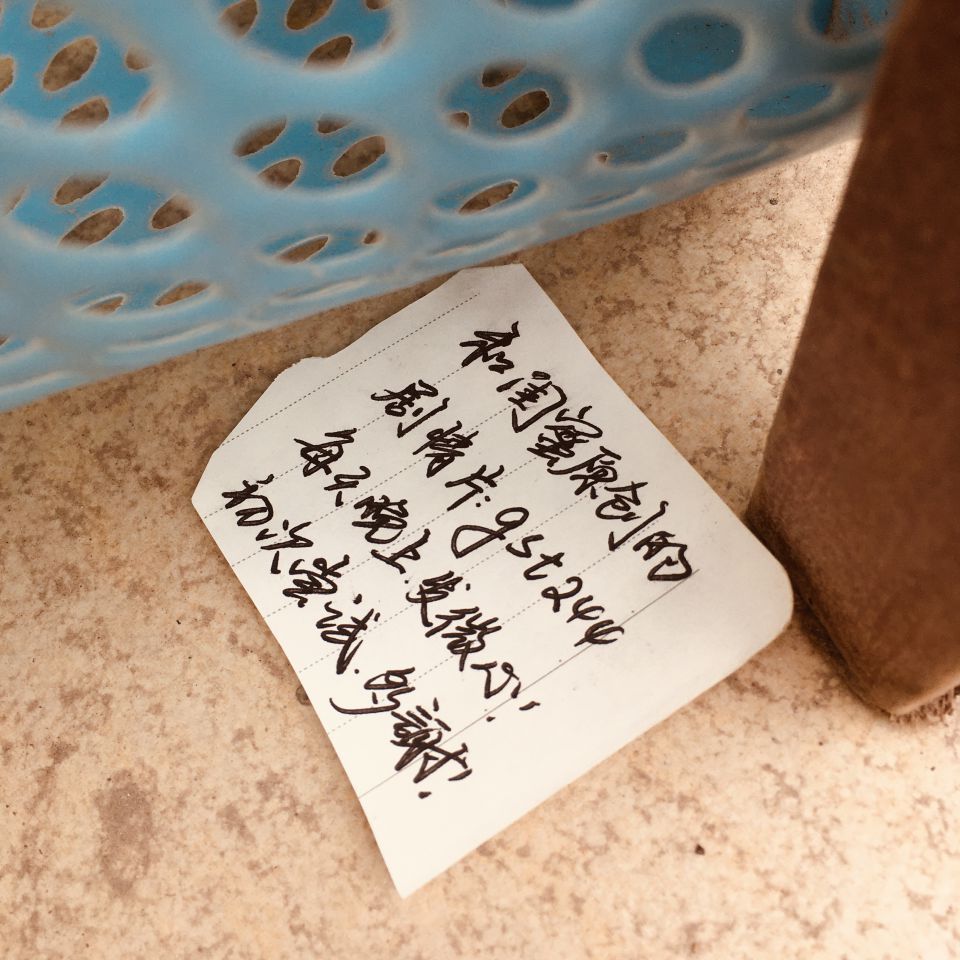 和闺蜜原创的
剧情片.gst244
每天晚上.发微心!
初次尝试.多謝!